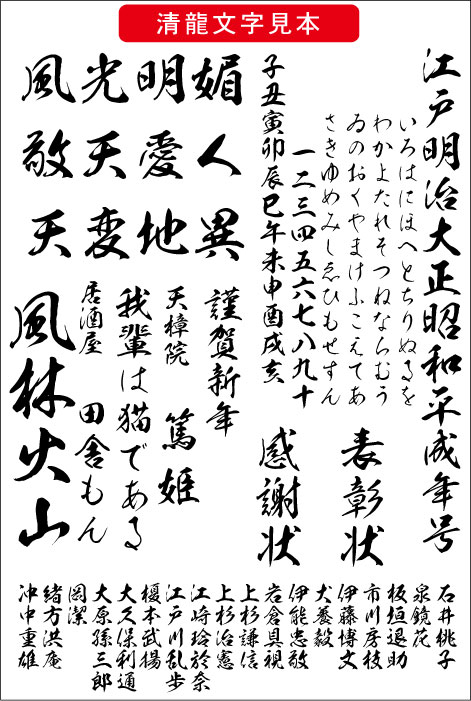 清龍文字見本
江戸明治大正昭和平成年号
いろはにほへとちりぬるを
わかよたれそつねならむう
ゐのおくやまけふこえてあ
さきゆめみしゑひもせすん
一二三四五六七八九十
子丑寅卯辰巳午未申酉戌亥
表彰状
感謝状
媚人異
明愛地
光天変
風敬天
謹賀新年
天樟院
篤姫
我輩は猫である
居酒屋
田舎もん
風林火山
石井桃子
泉鏡花
板垣退助
市川房枝
伊藤博文
犬養毅
伊能忠敬
岩倉具視
上杉謙信
上杉治憲
江崎玲於奈
江戸川乱歩
榎本武揚
大久保利通
大原孫三郎
岡潔
緒方洪庵
沖中重雄